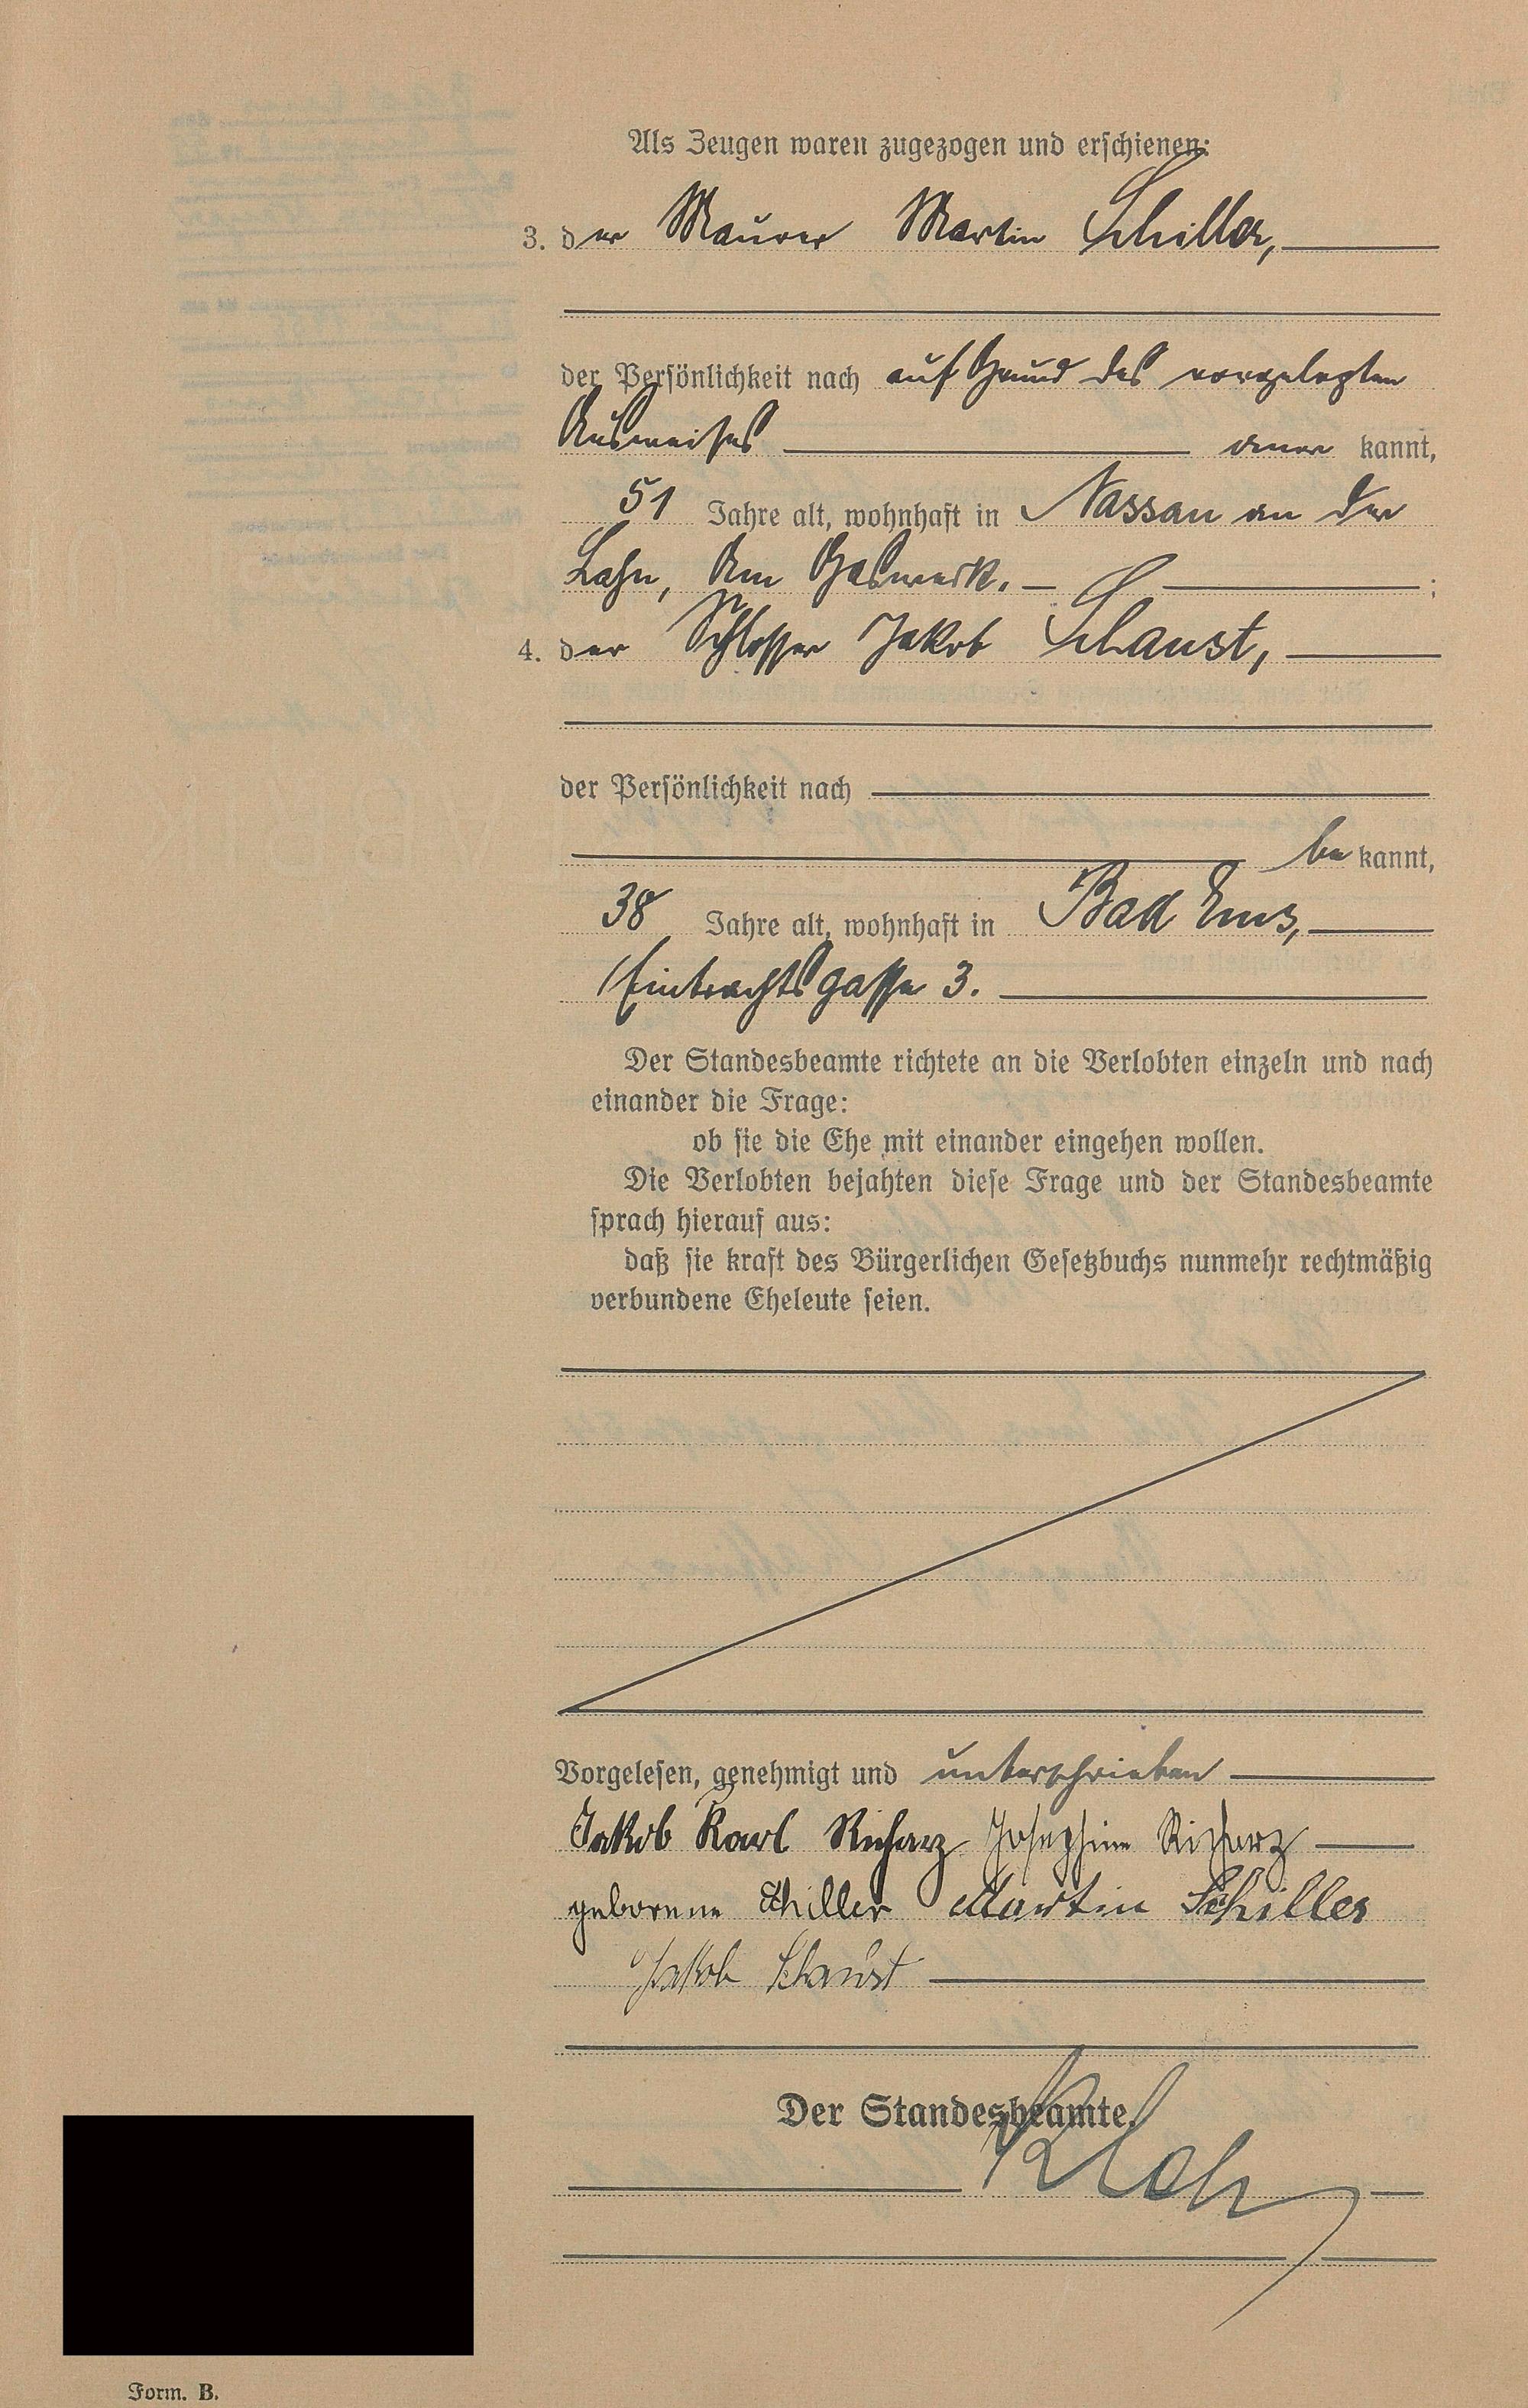 Als Zeugen waren zugezogen und erschienen:
3. der Maurer Martin Schiller,
der Persönlichkeit nach auf Grund des vorgelegten
Ausweises aner kannt,
51 Jahre alt, wohnhaft in Nassau an der
Lahn, Am Gaswerk.
;
4. der Schlosser Jakob Schaust,
der Persönlichkeit nach
be kannt,
38 Jahre alt, wohnhaft in Bad Ems,
Eintrachtsgasse 3.
Der Standesbeamte richtete an die Verlobten einzeln und nach
einander die Frage:
ob sie die Ehe mit einander eingehen wollen.
Die Verlobten bejahten diese Frage und der Standesbeamte
sprach hierauf aus:
daß sie kraft des Bürgerlichen Gesetzbuchs nunmehr rechtmäßig
verbundene Eheleute seien.
Vorgelesen, genehmigt und unterschrieben
Jakob Karl Richarz Josephine Richarz
geborene Schiller Martin Schiller
Jakob Schaust
Der Standesbeamte.
Form. B.